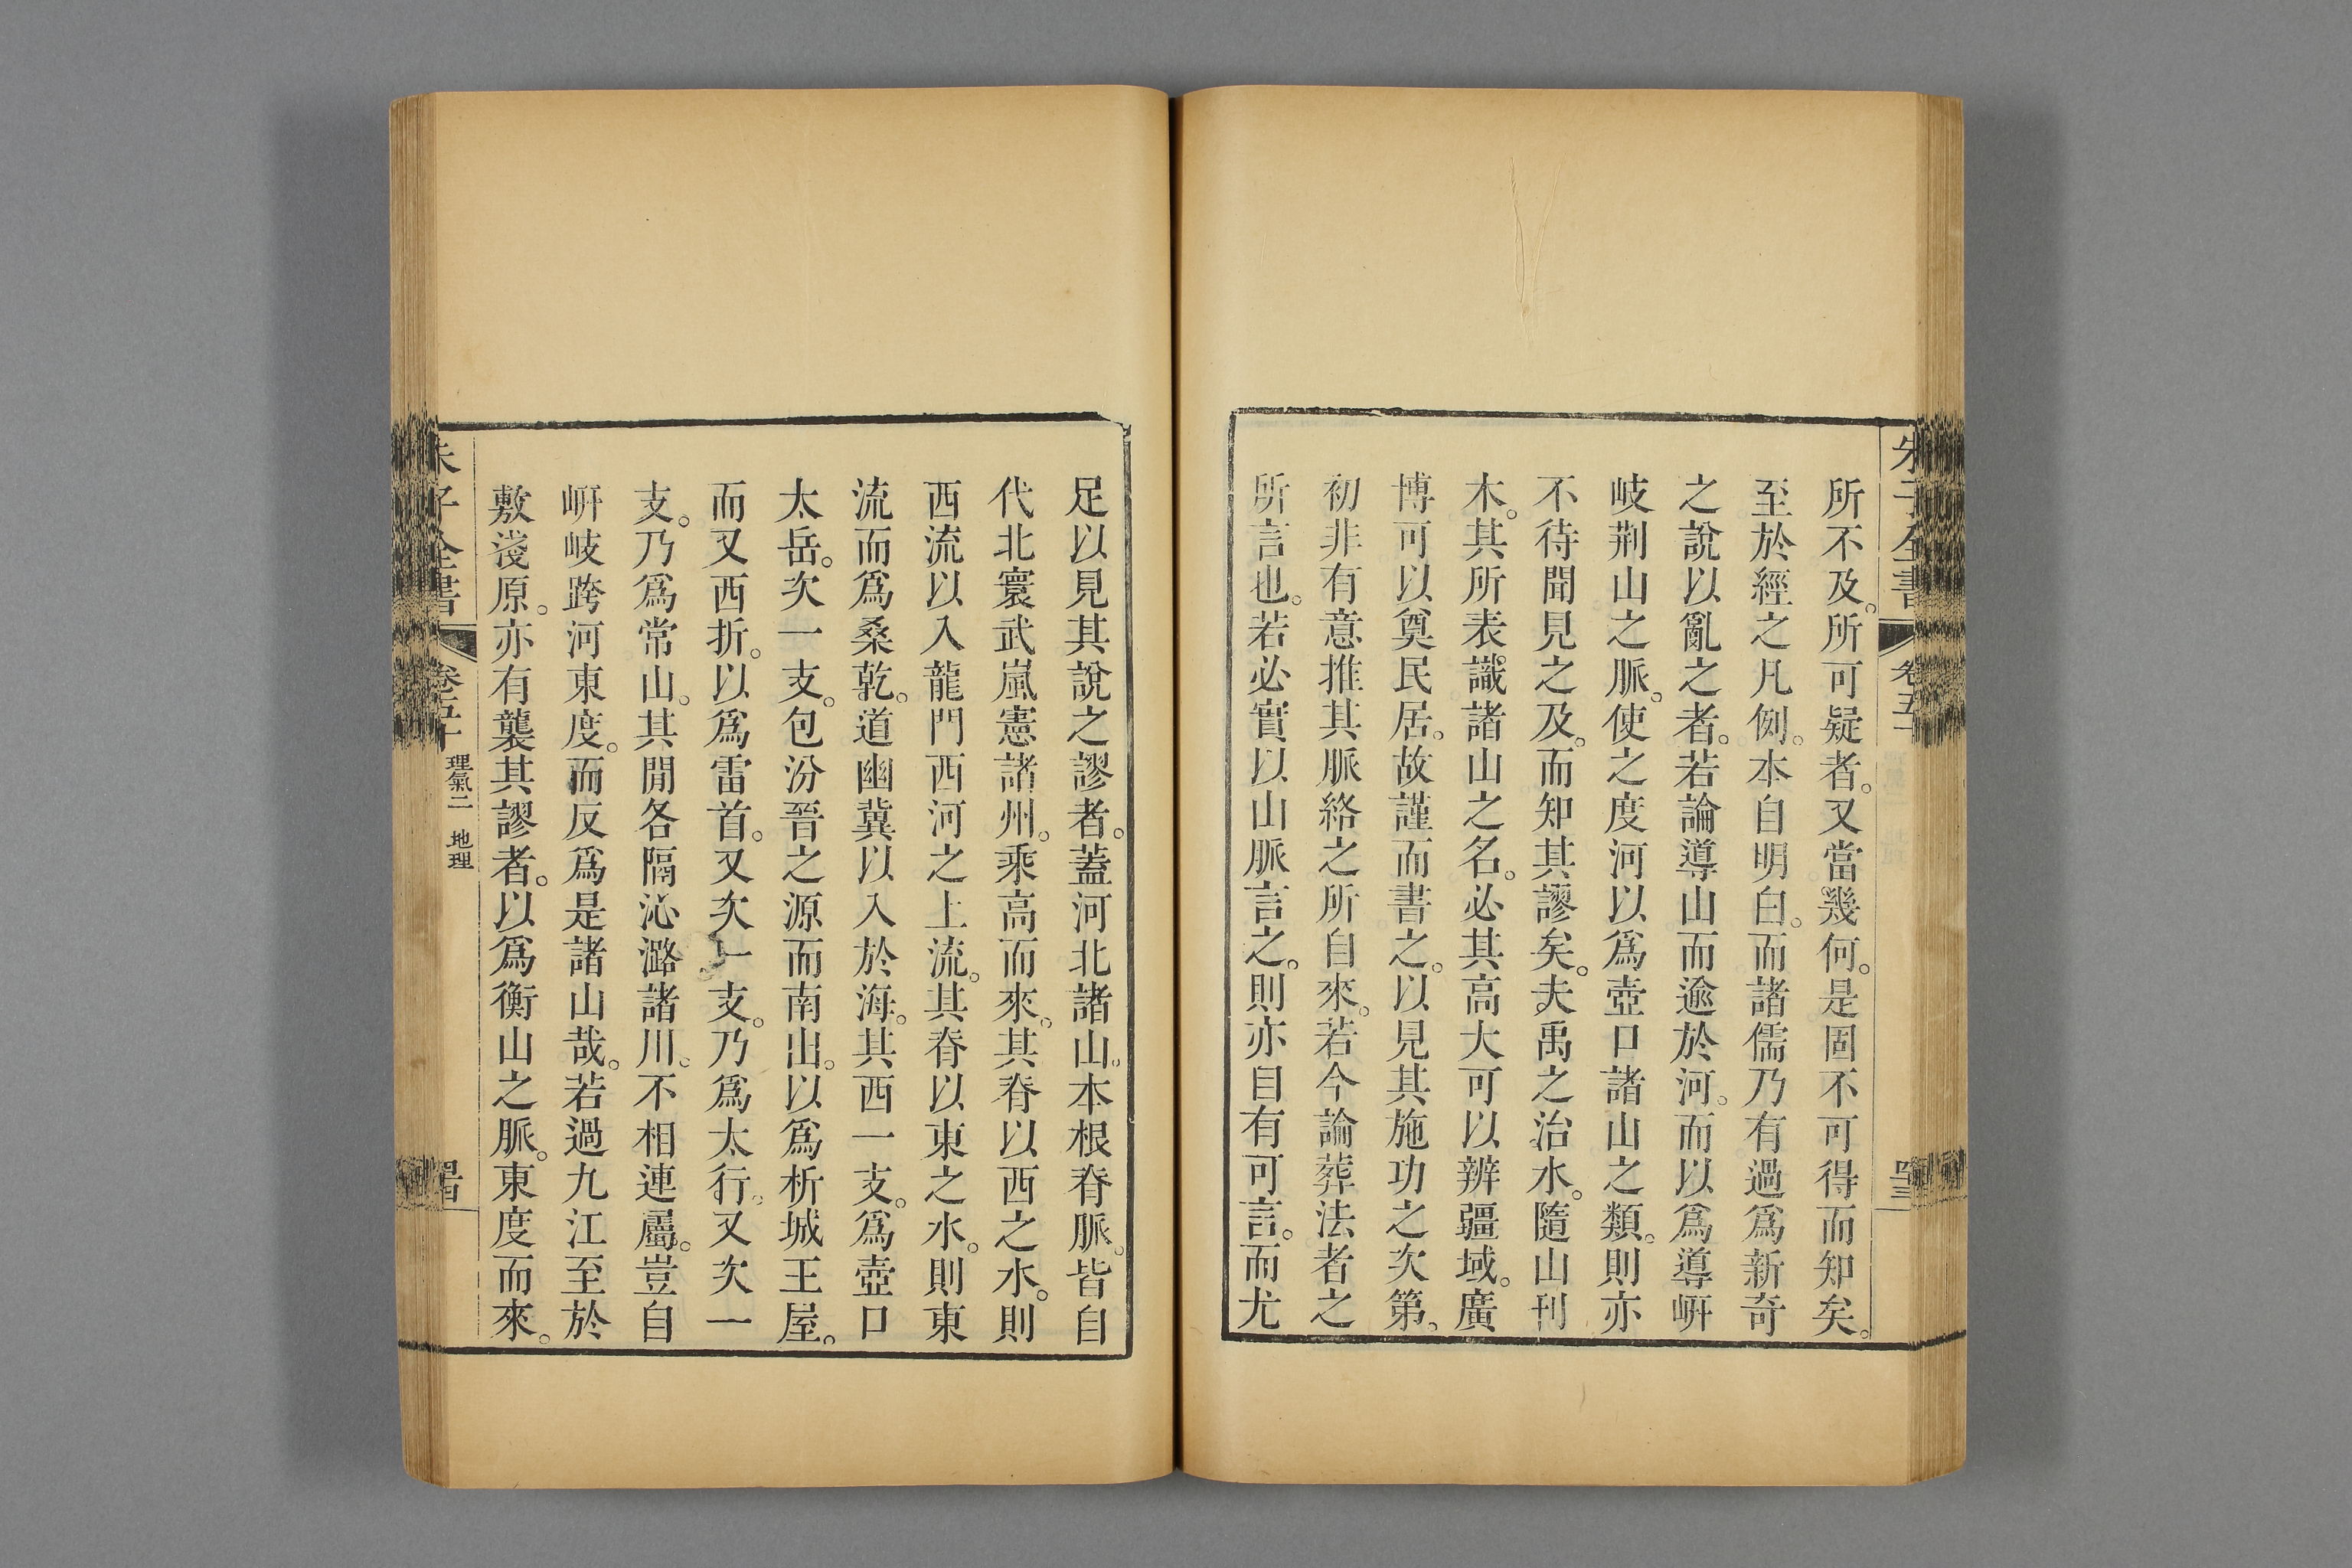 朱子全書 卷五十 四三
所不及。所可疑者。又當幾何。是固不可得而知矣。
至於經之凡例。本自明白。而諸儒乃有過爲新奇
之說以亂之者。若論導山而逾於河。而以爲導岍
岐荆山之脈。使之度河以爲壺口諸山之類。則亦
不待聞見之及。而知其謬矣。夫禹之治水。隨山刋
木。其所表識諸山之名。必其高大可以辨疆域。廣
博可以奠民居。故謹而書之。以見其施功之次第。
初非有意推其脈絡之所自來。若今論葬法者之
所言也。若必實以山脈言之。則亦自有可言。而尤
足以見其說之謬者。蓋河北諸山。本根脊脈。皆自
代北寰武嵐憲諸州。乘高而來。其脊以西之水。則
西流以入龍門西河之上流。其脊以東之水。則東
流而爲桑乾。道幽冀以入於海。其西一支。爲壺口
太岳。次一支。包汾晉之源而南出。以爲析城王屋。
而又西折。以爲雷首。又次一支。乃爲太行。又次一
支。乃爲常山。其閒各隔沁潞諸川。不相連屬。豈自
岍岐跨河東度。而反爲是諸山哉。若過九江至於
敷淺原。亦有襲其謬者。以爲衡山之脈。東度而來。
朱子全書 卷五十 理氣二 地理